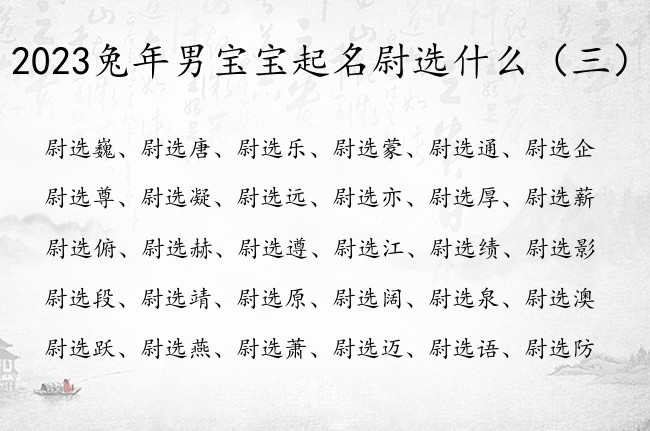 2023兔年男宝宝起名尉选什么（三）
尉选巍、尉选唐、尉选乐、尉选蒙、尉选通、尉选企
尉选尊、尉选凝、尉选远、尉选亦、尉选厚、尉选薪
尉选俯、尉选赫、尉选遵、尉选江、尉选绩、尉选影
尉选段、尉选靖、尉选原、尉选阔、尉选泉、尉选澳
尉选跃、尉选燕、尉选萧、尉选迈、尉选语、尉选防